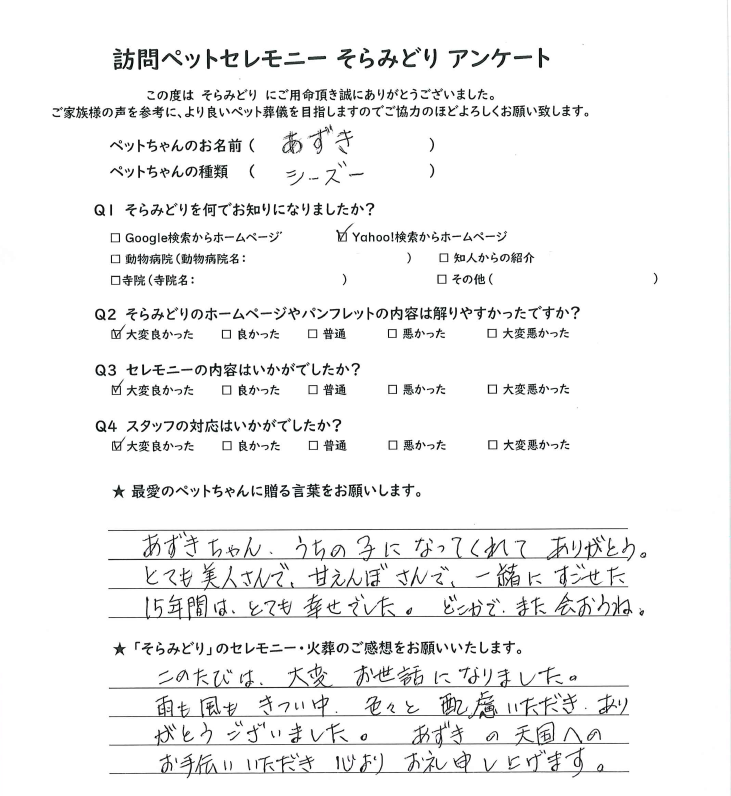 訪問ペットセレモニー そらみどり アンケート
この度は そらみどり にご用命頂き誠にありがとうございました。
ご家族様の声を参考に、より良いペット葬儀を目指しますのでご協力のほどよろしくお願い致します。
ペットちゃんのお名前 ( あずき )
ペットちゃんの種類 ( シーズー )
Q1 そらみどりを何でお知りになりましたか?
□ Google検索からホームページ ☑ Yahoo!検索からホームページ
□ 動物病院(動物病院名: ) □ 知人からの紹介
□寺院(寺院名: ) □ その他( )
Q2 そらみどりのホームページやパンフレットの内容は解りやすかったですか?
☑ 大変良かった □ 良かった □ 普通 □ 悪かった □ 大変悪かった
Q3 セレモニーの内容はいかがでしたか?
☑ 大変良かった □ 良かった □ 普通 □ 悪かった □ 大変悪かった
Q4 スタッフの対応はいかがでしたか?
☑ 大変良かった □ 良かった □ 普通 □ 悪かった □ 大変悪かった
★ 最愛のペットちゃんに贈る言葉をお願いします。
あずきちゃん、うちの子になってくれて ありがとう。
とても美人さんで、甘えんぼさんで、一緒にすごせた
15年間は、とても幸せでした。 どこかで、また会おうね。
★「そらみどり」のセレモニー・火葬のご感想をお願いいたします。
このたびは、大変 お世話になりました。
雨も風も きつい中、色々と 配慮いただき、あり
がとうございました。 あずき の 天国への
お手伝いいただき 心より お礼申し上げます。